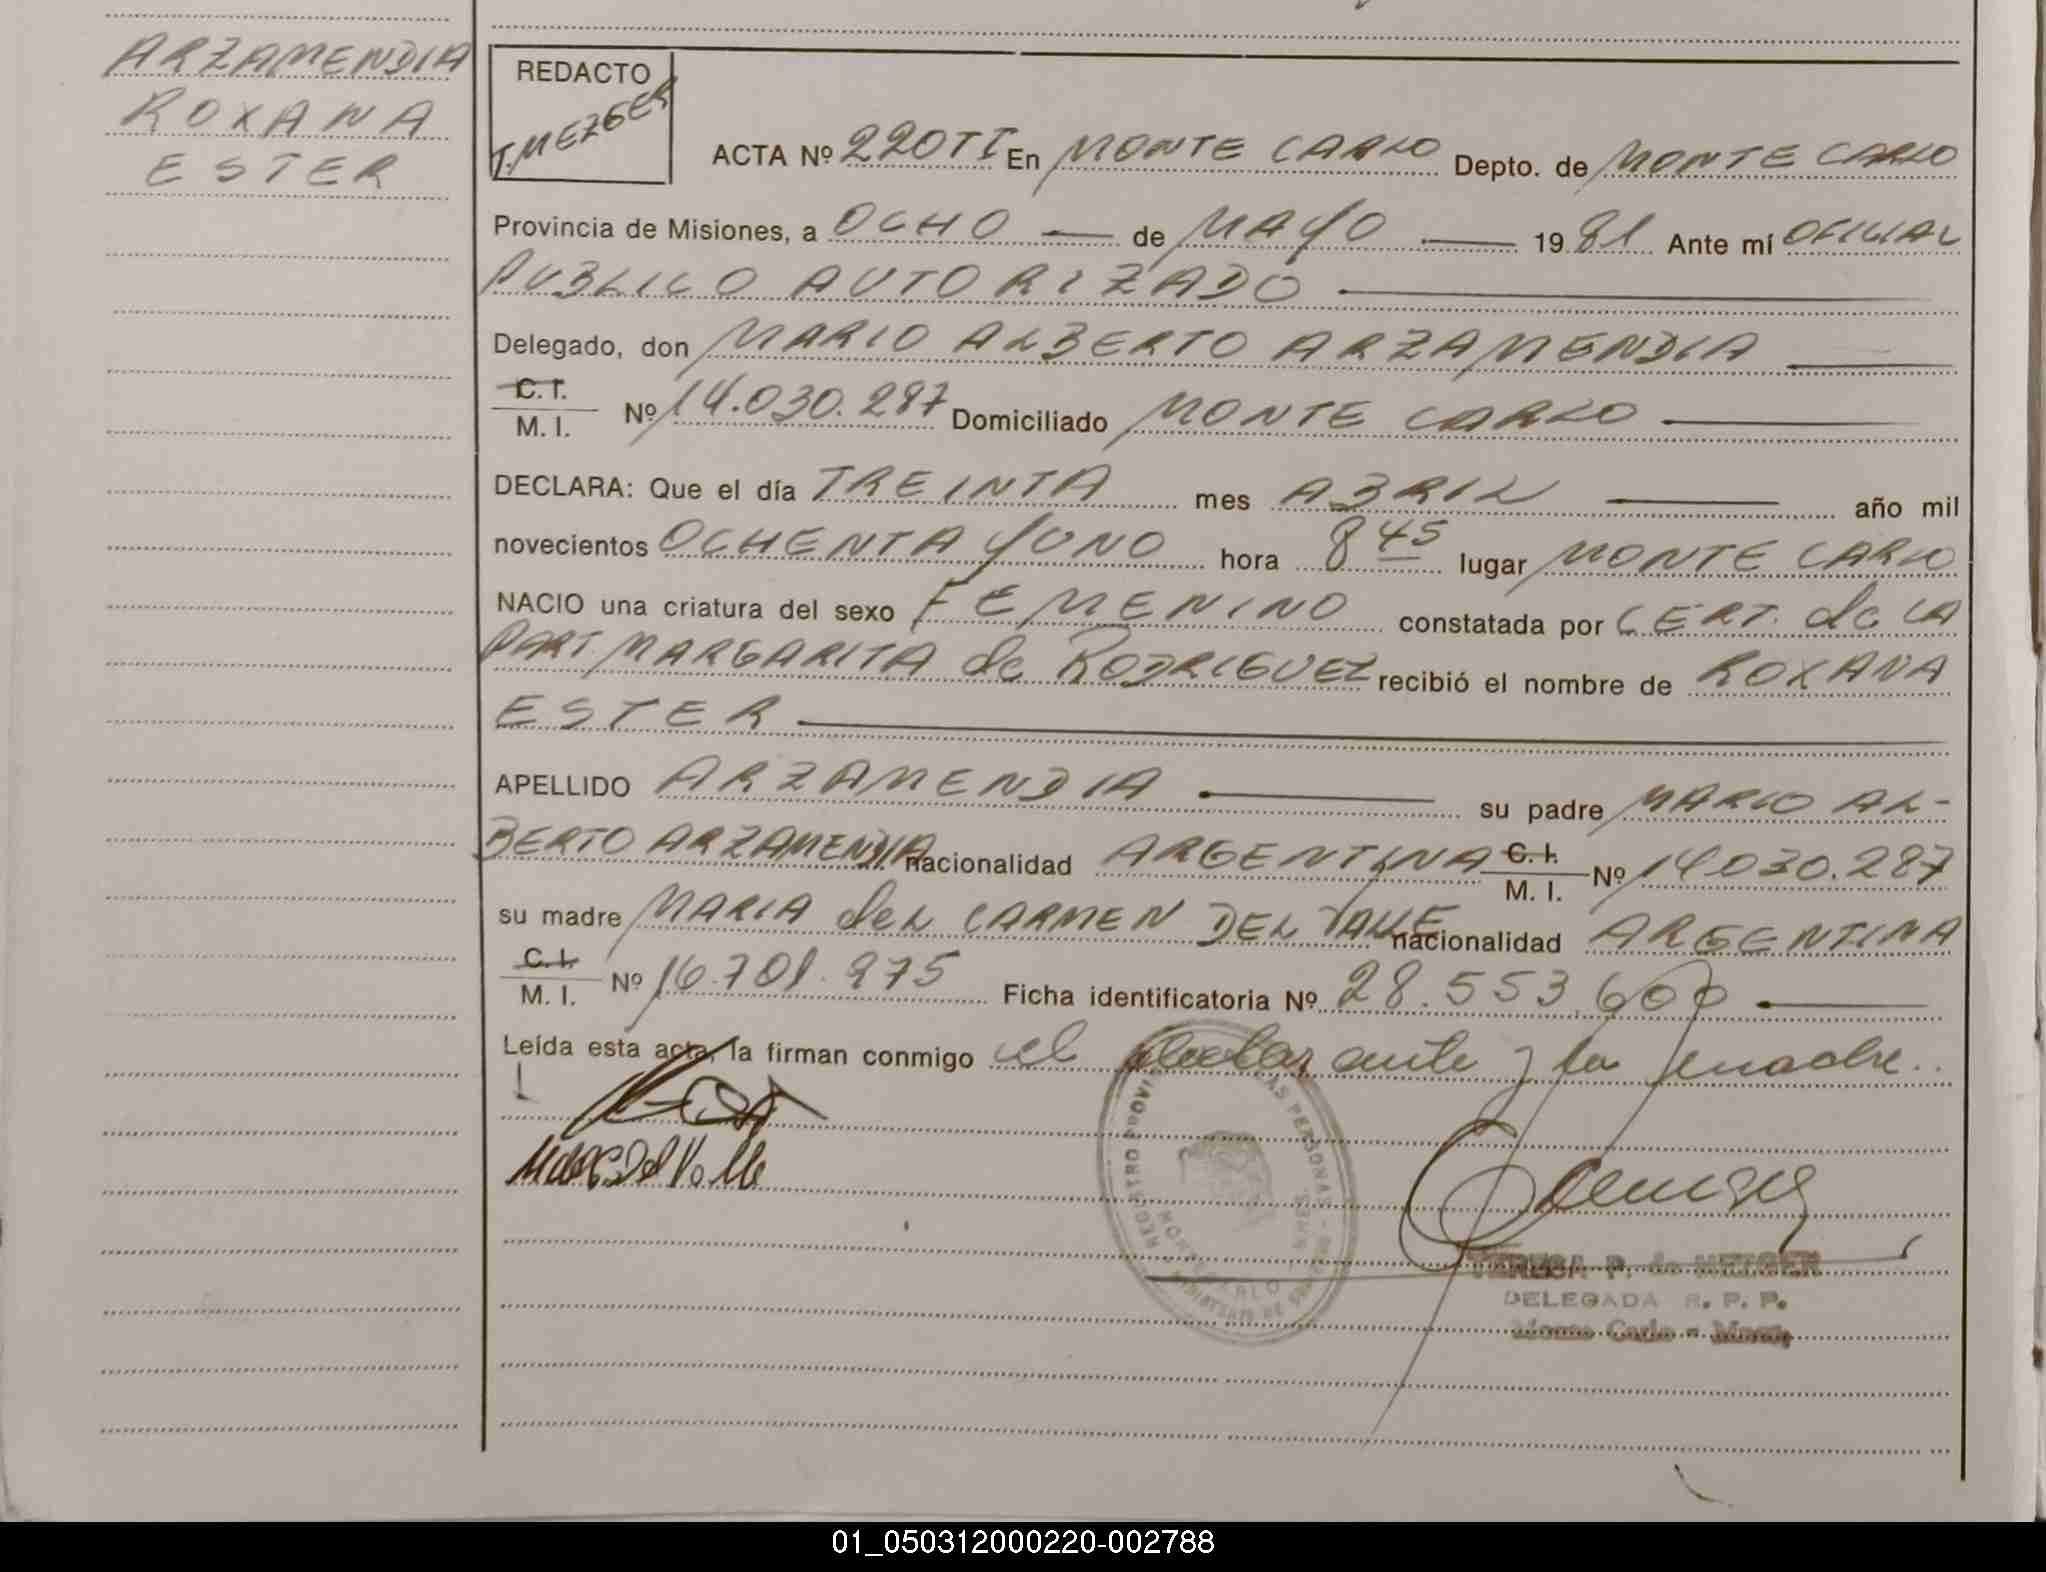 ARZAMENDIA
ROXANA
ESTER
REDACTO
T. MEZGER
ACTA Nº 220 TI En MONTE CARLO Depto. de MONTE CARLO
Provincia de Misiones, a OCHO de MAYO 1981 Ante mí OFICIAL
PUBLICO AUTORIZADO
Delegado, don MARIO ALBERTO ARZAMENDIA
C.I.
M. I. Nº 14.030.287 Domiciliado MONTE CARLO
DECLARA: Que el día TREINTA mes ABRIL año mil
novecientos OCHENTA Y UNO hora 8 45 lugar MONTE CARLO
NACIO una criatura del sexo FEMENINO constatada por CERT. de LA
PART. MARGARITA de RODRIGUEZ recibió el nombre de ROXANA
ESTER
APELLIDO ARZAMENDIA su padre MARIO AL-
BERTO ARZAMENDIA nacionalidad ARGENTINA C.I. M. I. Nº 14.030.287
su madre MARIA del CARMEN DEL VALLE nacionalidad ARGENTINA
C.I.
M. I. Nº 16.701.975 Ficha identificatoria Nº 28.553.600
Leída esta acta, la firman conmigo el declarante y la madre.
TERESA P. de METGER
DELEGADA R. P. P.
Monte Carlo - Mnes.
01_050312000220-002788